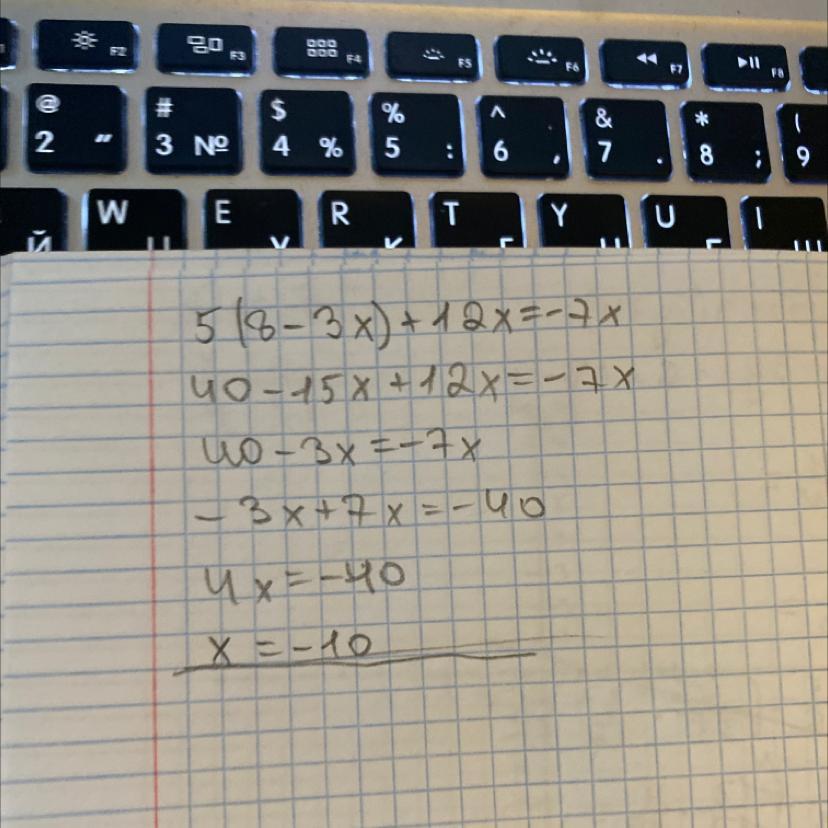 F2 F3 F4 F5 F6 F7 F8
@ # $ % ^ & * (
2 " 3 № 4 % 5 : 6 , 7 . 8 ; 9
W E R T Y U I
Й
5(8-3x)+12x=-7x
40-15x+12x=-7x
40-3x=-7x
-3x+7x=-40
4x=-40
x=-10